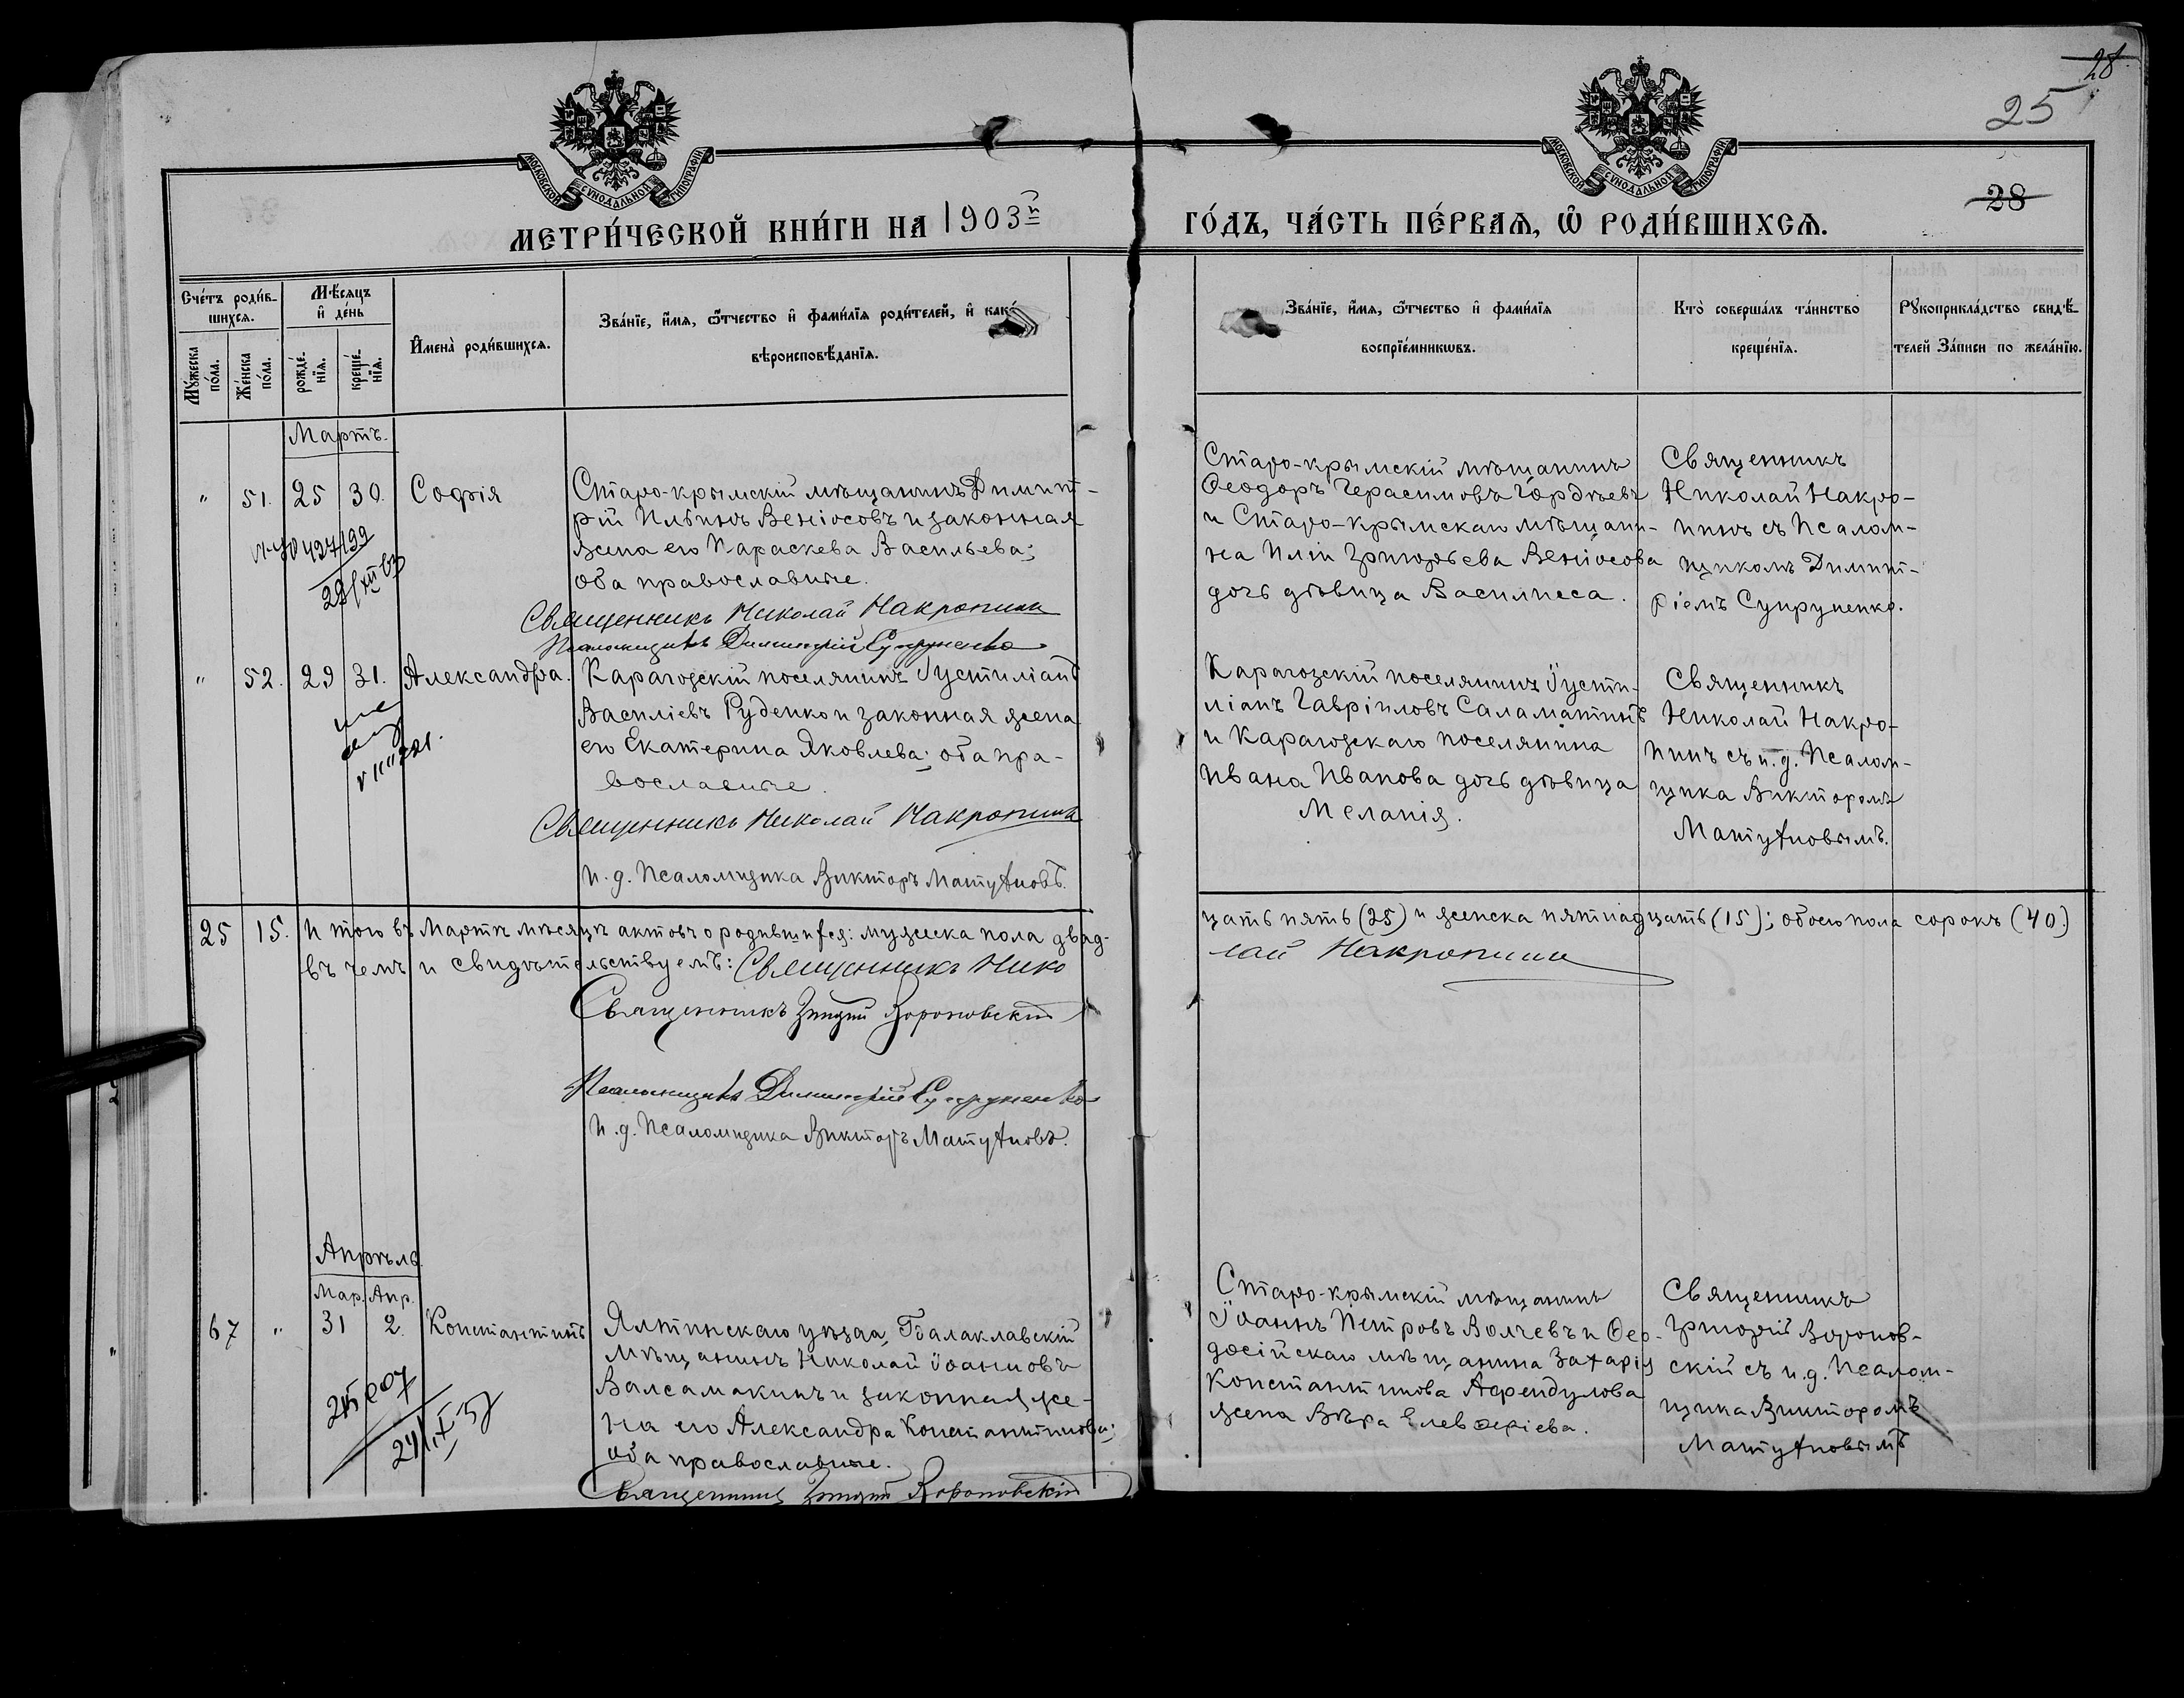 28
25
МОСКОВСКОЙ СѴНОДАЛЬНОЙ ТИПОГРАФІИ
МОСКОВСКОЙ СѴНОДАЛЬНОЙ ТИПОГРАФІИ
28
МЕТРИ́ЧЕСКОЙ КНИ́ГИ НА 1903й
ГО́ДЪ, ЧА́СТЬ ПЕ́РВАѦ, Ѽ РОДИ́ВШИХСѦ.
Сче́тъ роди́в-
шихсѧ.
Мꙋ́жеска по́ла.
Же́нска по́ла.
Мѣ́сѧцъ и҆ де́нь
рожде́-нїѧ.
креще́-нїѧ.
И҆мена̀ роди́вшихсѧ.
Зва́нїе, и҆́мѧ, ѻ҆́тчество и҆ фами́лїѧ роди́телей, и҆ како́
вѣроисповѣ́данїѧ.
Зва́нїе, и҆́мѧ, ѻ҆́тчество и҆ фами́лїѧ
воспрїе́мникѡвъ.
Кто̀ соверша́лъ та́инство
креще́нїѧ.
Рꙋкоприкла́дство свидѣ́-
телей За́писи по жела́нїю.
Мартъ.
" 51. 25 30. Софія
Старо-крымскій мѣщанинъ Димит-
рій Ильинъ Веніосовъ и законная
жена его Параскева Васильева;
оба православные.
Священникъ Николай Накропинъ
Псаломщикъ Димитрій Супруненко
Старо-крымскій мѣщанинъ
Ѳеодоръ Герасимовъ Гордѣевъ
и Старо-крымскаго мѣщани-
на Иліи Григорьева Веніосова
дочь дѣвица Василиса.
Священникъ
Николай Накро-
пинъ съ Псалом-
щикомъ Димит-
ріемъ Супруненко.
" 52. 29 31. Александра.
Карагозскій поселянинъ Іустиліанъ
Василіевъ Руденко и законная жена
его Екатерина Яковлева; оба пра-
вославные.
Священникъ Николай Накропинъ
И. д. Псаломщика Викторъ Матухновъ.
Карагозскій поселянинъ Іусти-
ліанъ Гавріиловъ Саламатинъ
и Карагозскаго поселянина
Ивана Иванова дочь дѣвица
Меланія.
Священникъ
Николай Накро-
пинъ съ и. д. Псалом-
щика Викторомъ
Матухновымъ.
25 15. Итого въ Мартѣ мѣсяцѣ актовъ о родившихся: мужеска пола двад-
цать пять (25) и женска пятнадцать (15); обоего пола сорокъ (40.)
въ чемъ и свидѣтельствуемъ: Священникъ Нико
лай Накропинъ
Священникъ Григорій Вороновскій
Псаломщикъ Димитрій Супруненко
И. д. Псаломщика Викторъ Матухновъ.
Апрѣль
Мар. Апр.
67 " 31 2. Константинъ
Ялтинскаго уѣзда, Балаклавскій
мѣщанинъ Николай Іоанновъ
Валсамакинъ и законная же-
на его Александра Константинова;
оба православные.
Священникъ Григорій Вороновскій
Старо-крымскій мѣщанинъ
Іоаннъ Петровъ Волчевъ и Ѳео-
досійскаго мѣщанина Захарія
Константинова Афендулова
жена Вѣра Елевѳеріева.
Священникъ
Григорій Воронов-
скій съ и. д. Псалом-
щика Викторомъ
Матухновымъ